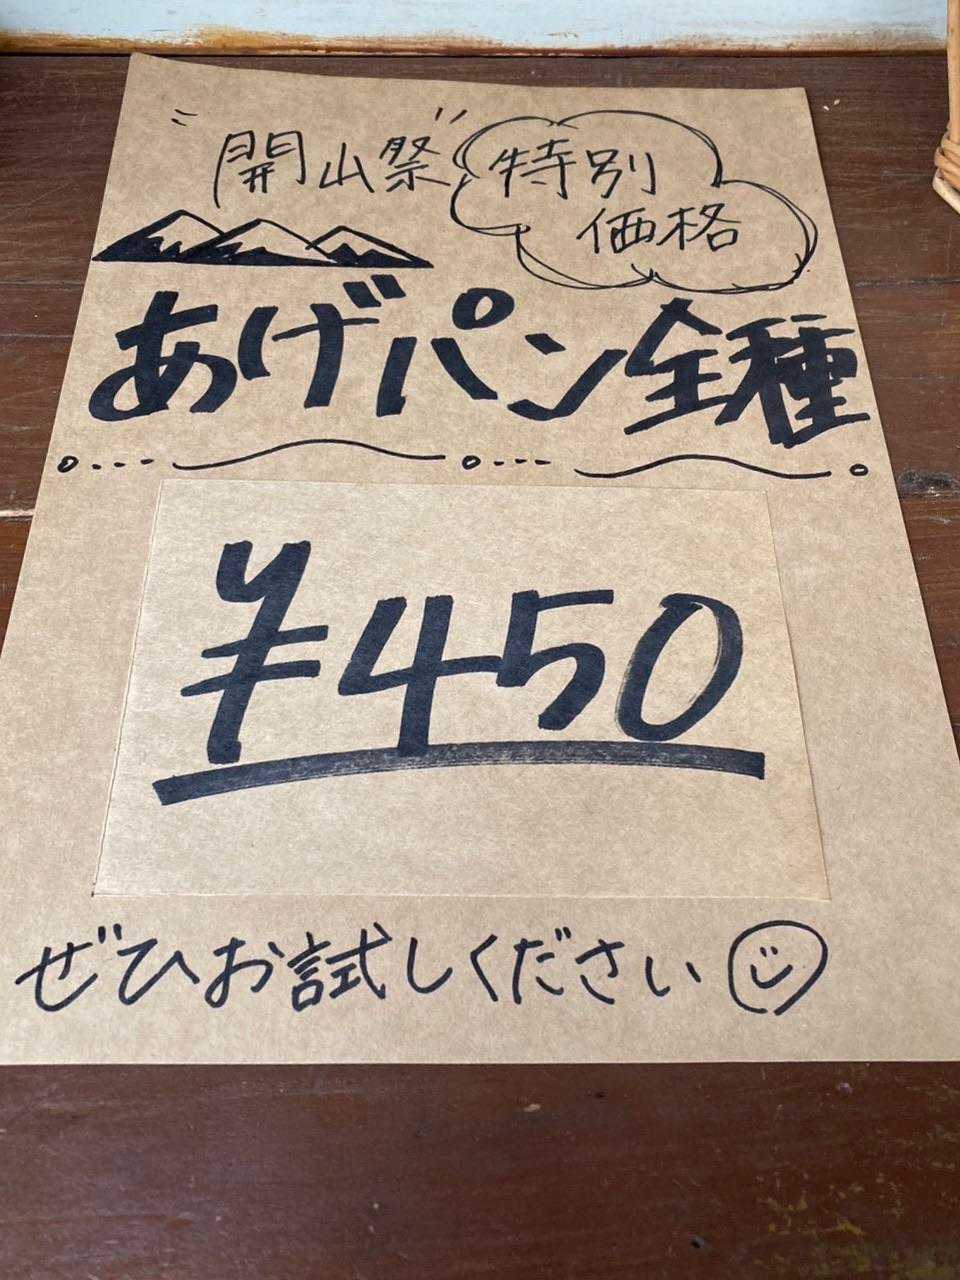 "開山祭"
特別
価格
あげパン全種
¥450
ぜひお試しください